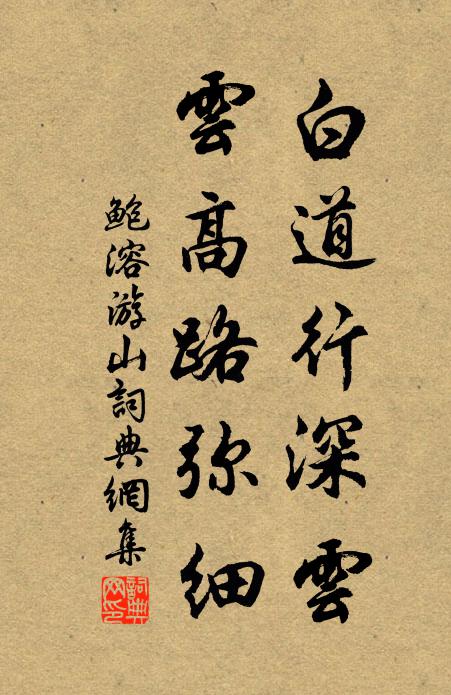 白道行深雲
雲高路弥細
鲍溶游山詞典網集
詞典網印